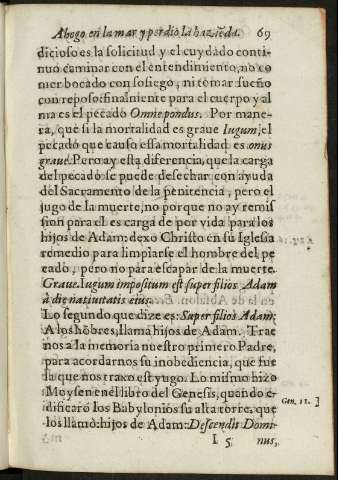 Abogo en la mar y perdio la haziẽda. 69
dicioso es la solicitud y el cuydado conti-
nuo caminar con el entendimiento, no co
mer bocado con sosiego, ni tomar sueño
con reposo: finalmente para el cuerpo y al
ma es el pecado Omne pondus. Por mane-
ra, que si la mortalidad es graue Iugum, el
pecado que causo essa mortalidad es onus
graue. Pero ay esta diferencia, que la carga
del pecado se puede desechar con ayuda
del Sacramento de la penitencia, pero el
jugo de la muerte, no porque no ay remis
sion para el es carga de por vida para los
hijos de Adam: dexo Christo en su Iglesia
remedio para limpiarse el hombre del pe
cado, pero no para escapar de la muerte.
Graue Iugum impositum est super filios Adam
à die natiuitatis eius.
Lo segundo que dize es: Super filios Adam:
A los hõbres, llama hijos de Adam. Trae
nos a la memoria nuestro primero Padre,
para acordarnos su inobediencia, que fue
la que nos traxo est yugo. Lo mismo hizo
Moysen en el libro del Genesis, quando e-
dificarõ los Babylonios su alta torre, que
los llamò: hijos de Adam: Descendit Domi-
Gen. 11. ]
I 5 nus,